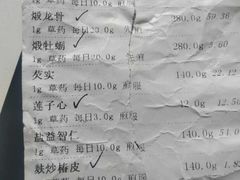 煅龙骨 280.0g 59.36
1g 草药 每日20.0g 先煎
煅牡蛎 280.0g 3.60
1g 草药 每日20.0g 先煎
芡实 140.0g
1g 草药 每日10.0g 煎服
莲子心
1g 草药 每日3.0g 煎服
盐益智仁 140.0g
1g 草药 每日10.0g 煎服
麸炒椿皮 140.0g
1g 草药 每日10.0g 煎服